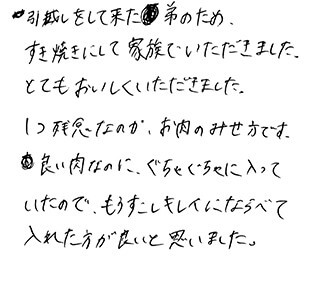 引越しをして来た弟のため、
すき焼きにして家族でいただきました。
とてもおいしくいただきました。
1つ残念なのが、お肉のみせ方です。
良い肉なのに、ぐちゃぐちゃに入って
いたので、もうすこしキレイにならべて
入れた方が良いと思いました。